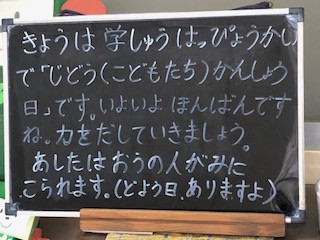 きょうは 学しゅう はっぴょうかい
で「じどう(こどもたち)かんしょう
日」です。いよいよ ほんばんです
ね。力をだしていきましょう。
あしたはおうの人がみに
こられます。(どよう日、ありますよ)